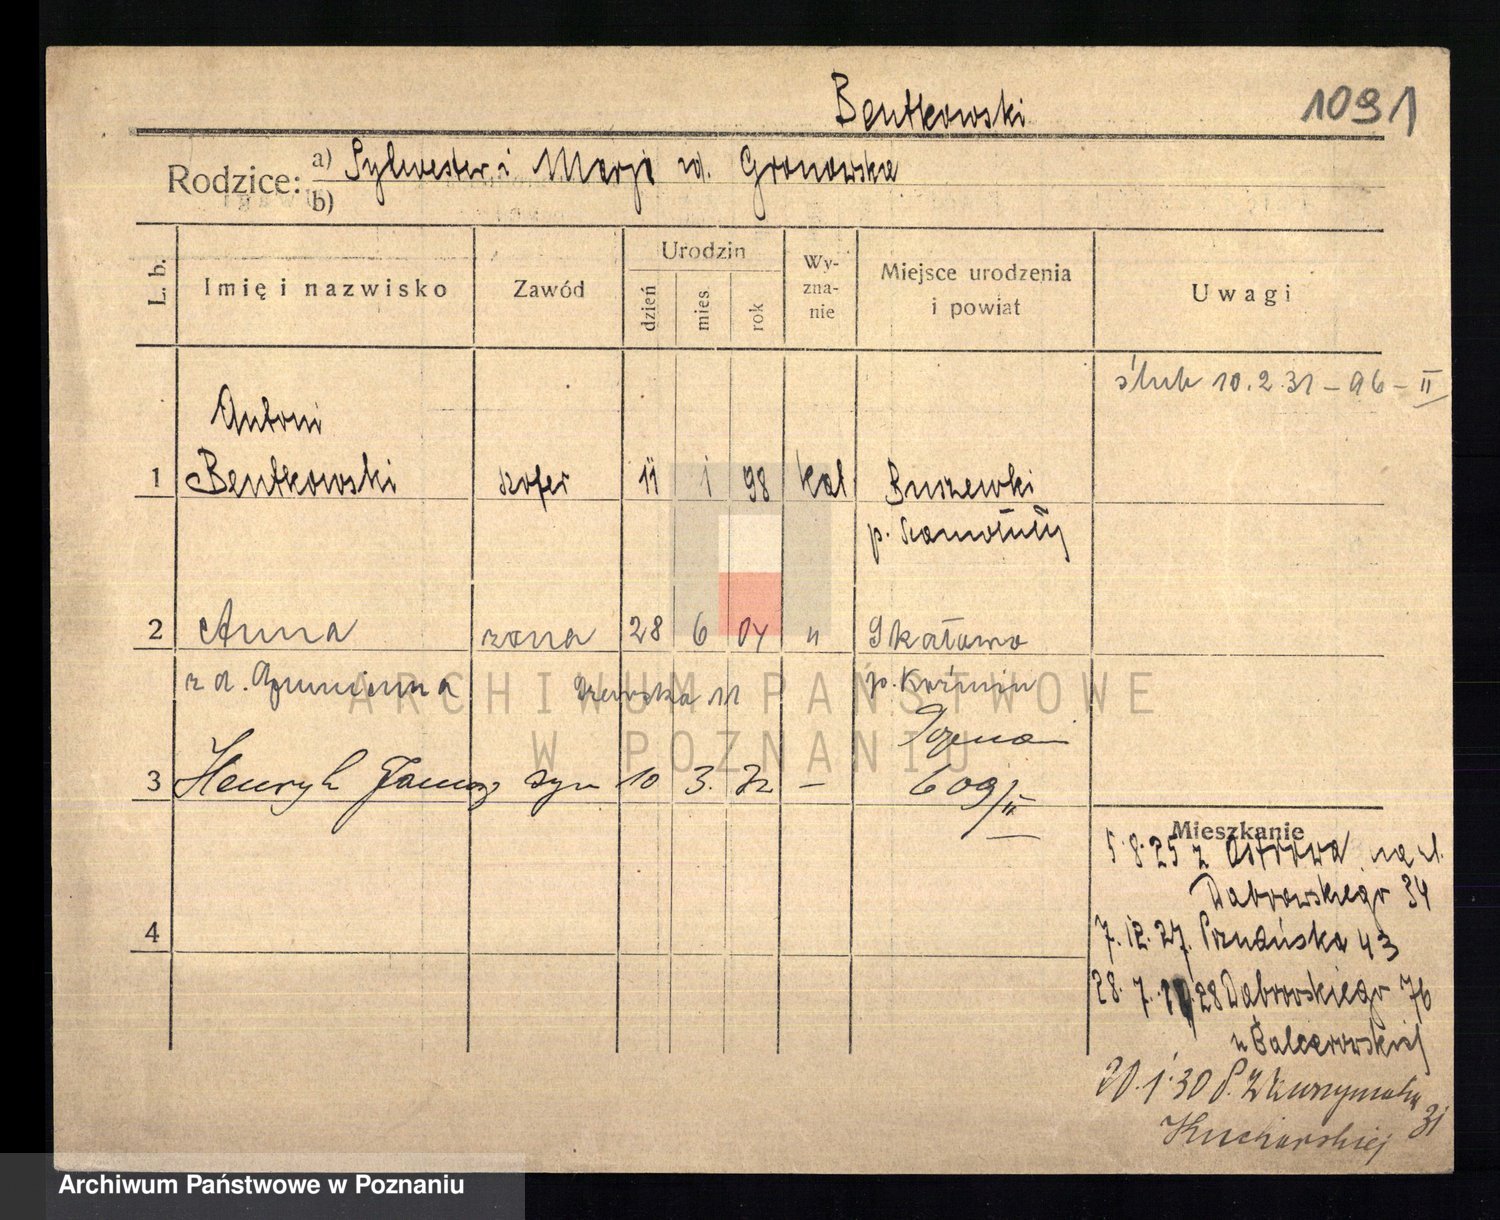 Bentkowski
1091
Rodzice: a) Sylwester i Marja zd. Gronowska
b)
L. b.
Imię i nazwisko
Zawód
Urodzin
dzień
mies.
rok
Wy-
zna-
nie
Miejsce urodzenia
i powiat
Uwagi
ślub 10.2.31 – 96 – II
Antoni
1 Bentkowski szofer 11 1 98 kat Buszewki
p. Szamotuły
2 Anna żona 28 6 04 " Skałowo
z d. p. Koźmin
Poznań
3 Henryk Janusz syn 10 3. 32 – 609/II
4
Mieszkanie
5.8.25 z Ostrowa na ul.
Dąbrowskiego 34
7.12.27. Poznańska 43
28.7. 28 Dąbrowskiego 76
u Balcerowskiej
20.1.30 P.
Kucharskiej 31
ARCHIWUM PAŃSTWOWE
W POZNANIU
Archiwum Państwowe w Poznaniu